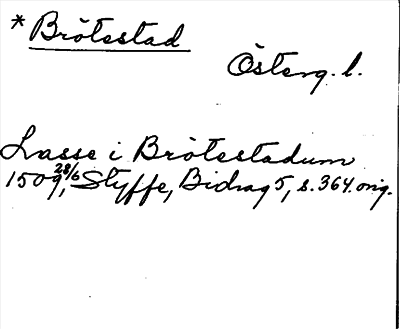 * Brötestad
Österg. l.
Lasse i Brötestadum
1509 28/6, Styffe, Bidrag 5, s. 364. orig.